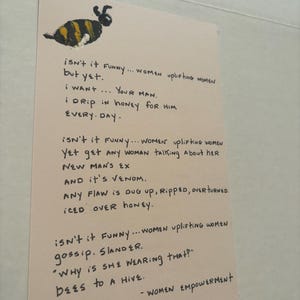 isn't it funny... women uplifting women
but yet.
i want ... your man.
i drip in honey for him
every. day.
isn't it funny...women uplifting women
yet get any woman talking about her
new man's ex
and it's venom.
any flaw is dug up, ripped, overturned.
iced over honey.
isn't it funny...women uplifting women
gossip. slander.
"why is she wearing that?"
bees to a hive.
- women empowerment